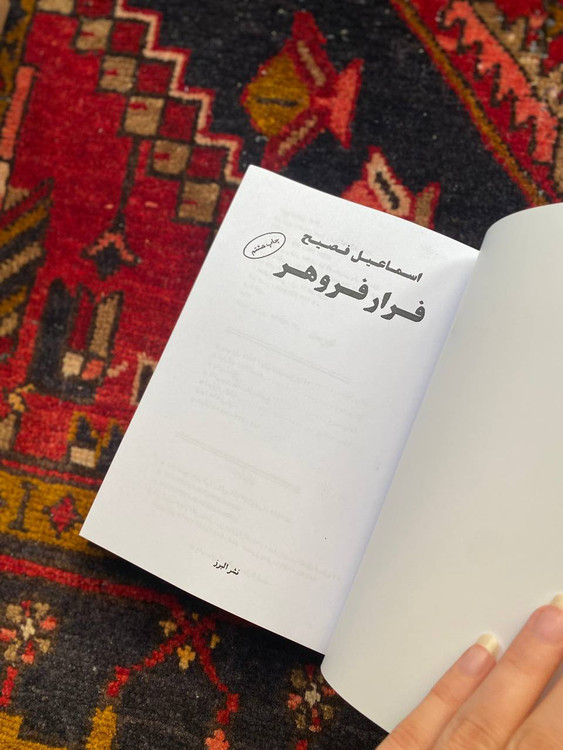 اسماعیل فصیح
فرار فروهر
چاپ هشتم
نشر البرز